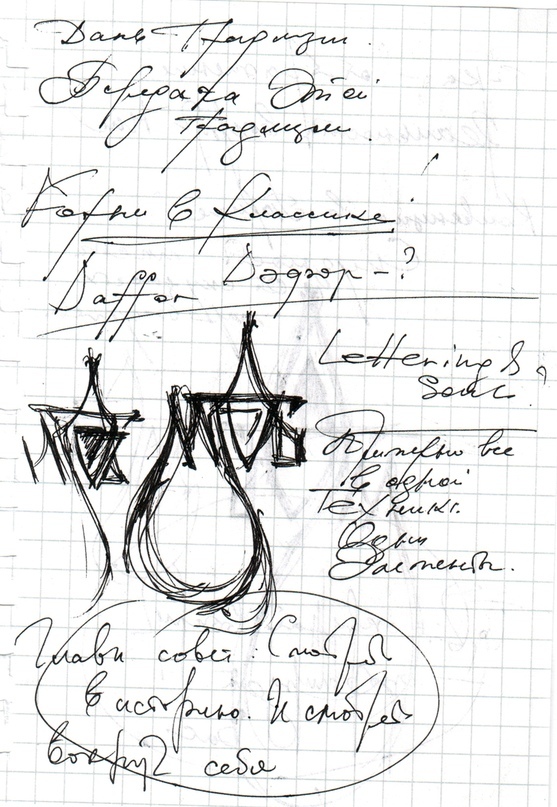 Дань Традиции.
Передача Этой
Традиции.
Корни в классике!
Daffon Дэфэн - ?
Lettering &
Soul ?
Примерно все
в одной
Технике.
Одни
Элементы.
Главн совет: Смотреть
в историю. И смотреть
вокруг себя